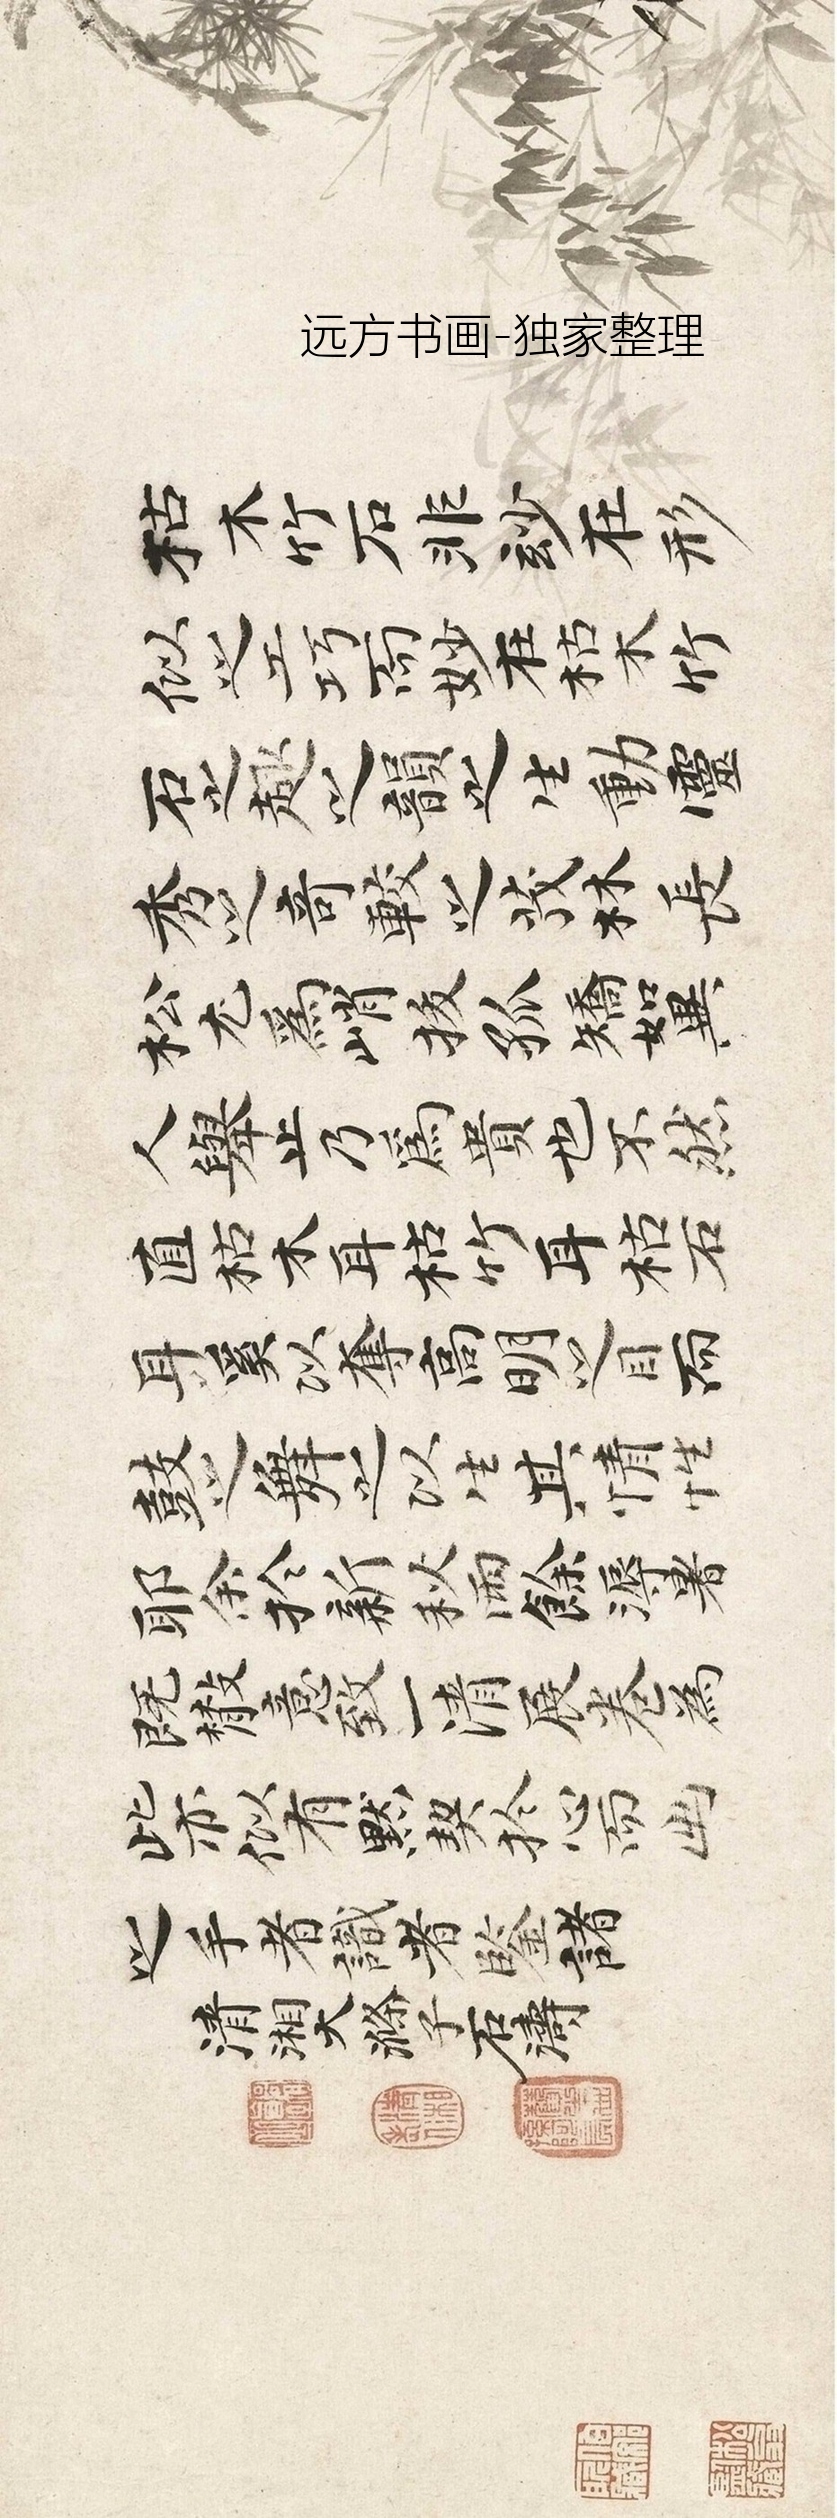 远方书画-独家整理
枯木竹石非紗在形
似之工巧而妙在枯木竹
石之趣之韻之生動靈
秀之奇較之茂林長
松尤爲峭拔孤矯如異
人舉止乃爲貴也不然
直枯木耳枯竹耳枯石
耳奚以奪高明之目而
鼓之舞之以生其情性
耶余於新秋洒餘溽暑
既散意致一清展卷為
此亦似有默契於心而出
之手者識者鑒諸
清湘大滌子石濤